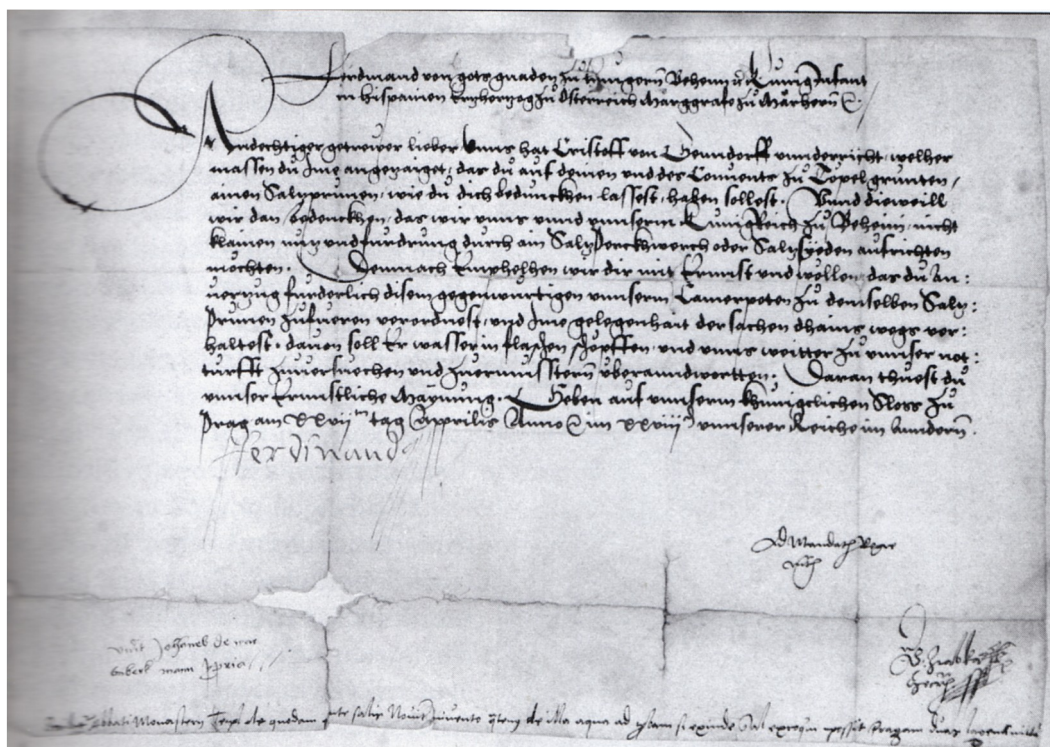 Ferdinand von gots gnaden zu Hungern Behem Kunig Infant
in Hispanien Ertzhertzog zu Osterreich Marggrafe zu Märhern
Andechtiger getrewer lieber Unns hat Cristoff von Genndorff unnderricht, welher
massen du Ime angezaiget, das du auf deinen und des Convents zu Töpel grunten,
ainen Saltzprunen, wie du dich beduncken lassest, haben sollest. Unnd dieweill
wir dan bedenckhen, das wir unns unnd unnserm Kunig Reich zu Beheim, nicht
klainen nutz und furdrung durch ain Saltz Perckhwerch oder Saltzsyeden aufrichten
mochten. Demnach Emphelhen wir dir mit Ernnst und wöllen, das du An:
furderlich disem gegenwurtigen unnserm Camerpoten zu demselben Saltz:
Prunen zufueren verordnest, und Ime gelegenhait der sachen dhains wegs ver:
haltest. davon soll Er wasser in flaschen schöpffen, und unns weitter zu unnser not:
turfft zuversuechen und zuermusstern uberanndwortten. Daran thuest du
unnser Ernnstliche Maynung. Geben auf unnserm khunigclichen Sloss zu
Prag am XXVII tag Apprilis Anno im XXVIII unnserer Reiche im Anndern.
Ferdinand
Ad Mandatum Regie
Johannes de
mann
Abbati Monasterii Tepl de quodam fonte salis Noviter invento de illa aqua ad si exinde Sal possit Pragam duas